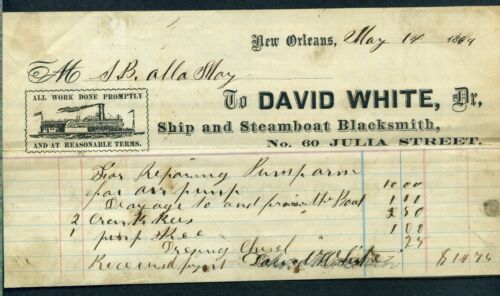 New Orleans, May 14 1869
M S.B. alla May
ALL WORK DONE PROMPTLY
AND AT REASONABLE TERMS.
To DAVID WHITE, Dr,
Ship and Steamboat Blacksmith,
No. 60 JULIA STREET.
For Repairing Pump arm
for air pump 10 00
Drayage to and from the Boat 1 00
2 Crank Kees 2 50
1 pump Kee 1 00
Chisel 25
Received payt David White $14 75